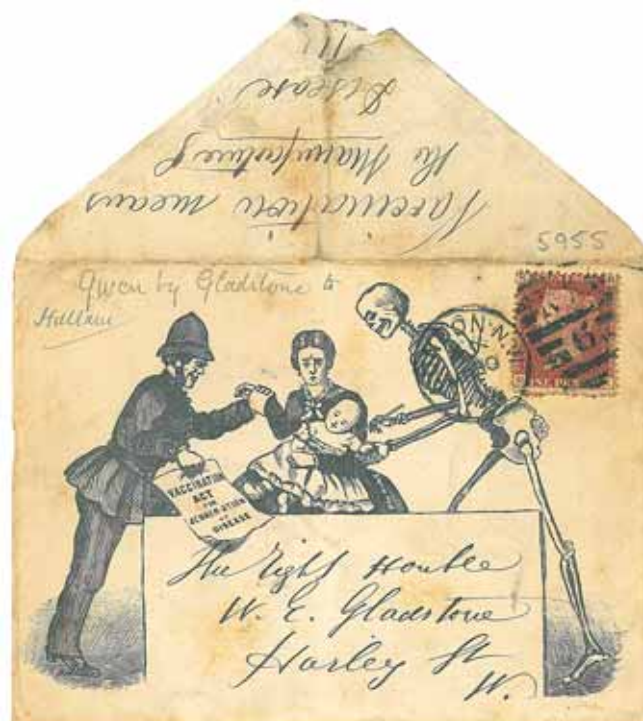 Vaccination means
the Manufacture of
Disease
5955
Given by Gladstone to
Hallam
VACCINATION
ACT
FOR
JENNER-ATION
OF
DISEASE
The Right Honble
W. E. Gladstone
Harley St
W.